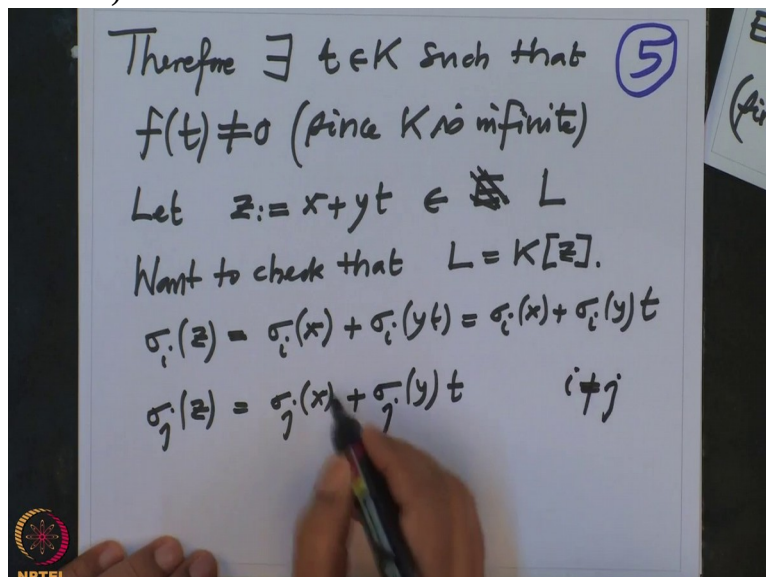 Therefore ∃ t∈K such that
5
f(t)≠0 (since K is infinite)
Let z:= x+yt ∈ L
Want to check that L = K[z].
σᵢ(z) = σᵢ(x) + σᵢ(yt) = σᵢ(x) + σᵢ(y) t
σⱼ(z) = σⱼ(x) + σⱼ(y) t i≠j
NPTEL